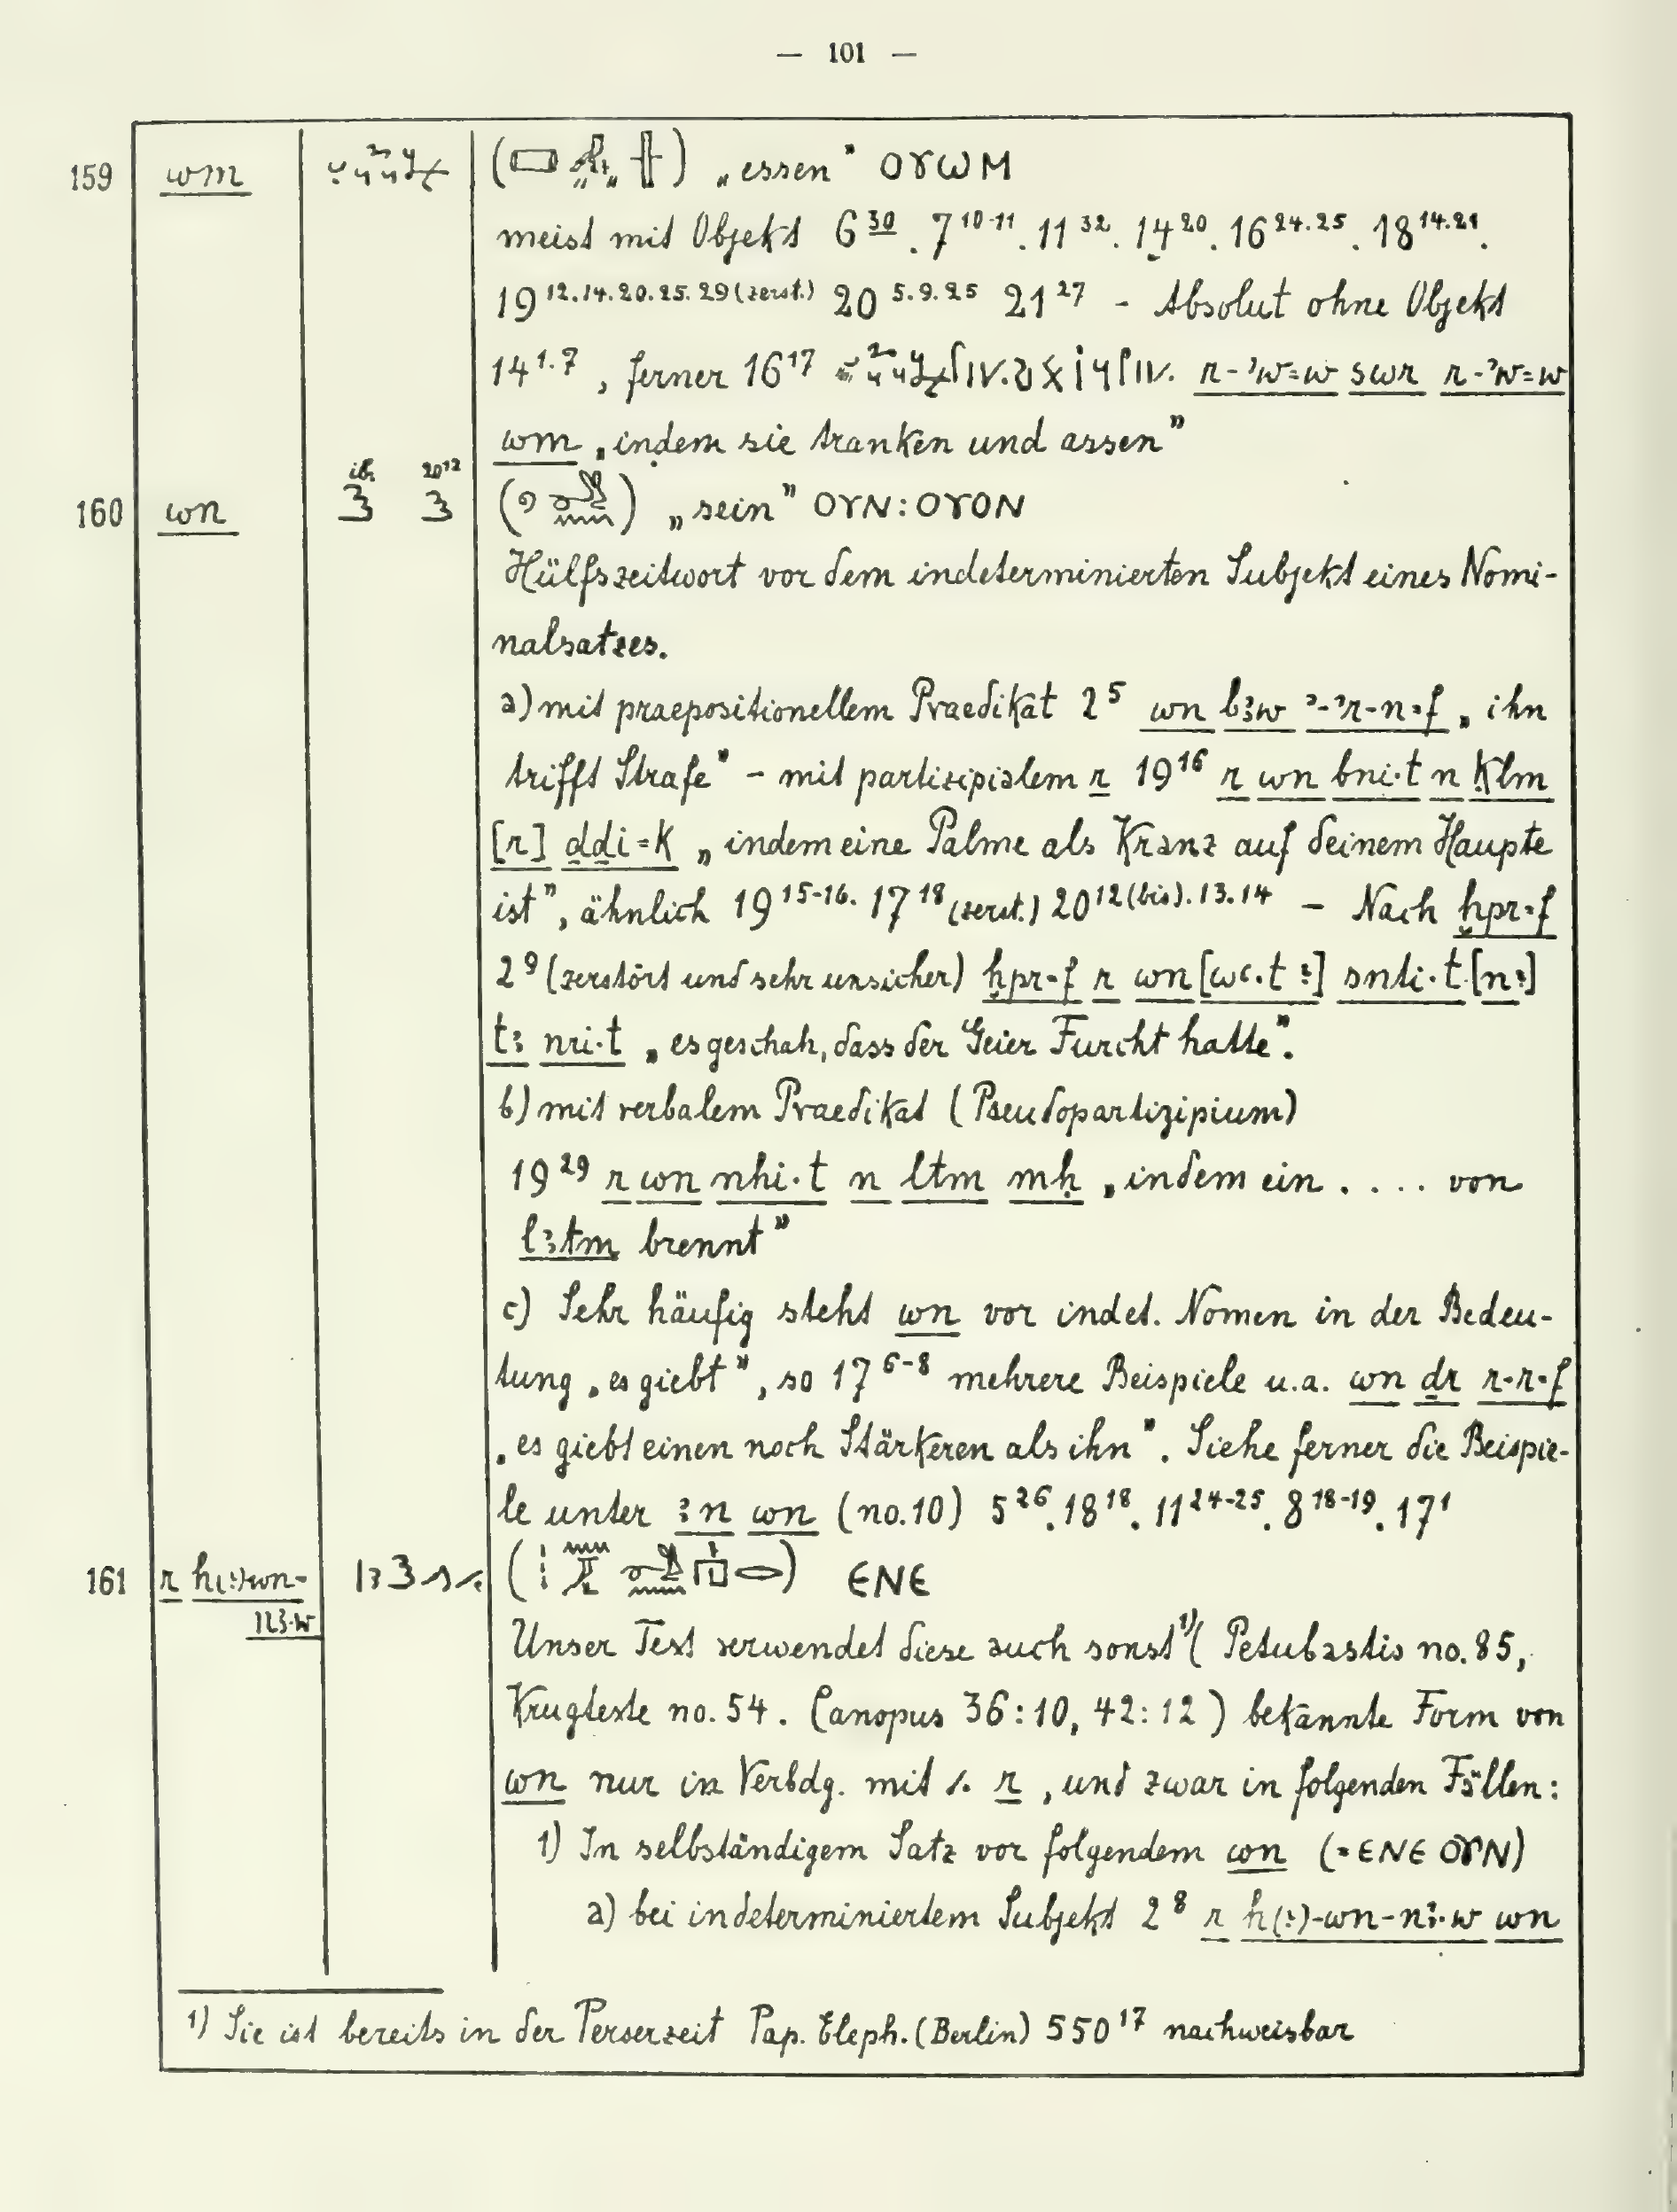 — 101 —
159 wm ( ) „essen" ⲟⲩⲱⲙ
meist mit Objekt 6 30 . 7 10-11 . 11 32 . 14 20 . 16 24.25 . 18 14.21 .
19 12.14.20.25.29 (zerst.) 20 5.9.25 21 27 - Absolut ohne Objekt
14 1.7 , ferner 16 17 r-ʾw=w swr r-ʾw=w
wm „indem sie tranken und assen"
ib. 20 12
160 wn ( ) „sein" ⲟⲩⲛ : ⲟⲩⲟⲛ
Hülfszeitwort vor dem indeterminierten Subjekt eines Nomi-
nalsatzes.
a) mit praepositionellem Praedikat 2 5 wn bꜣw ʾ-ʾr-n=f „ihn
trifft Strafe" - mit partizipialem r 19 16 r wn bni·t n ḳlm
[r] ḏḏi=k „indem eine Palme als Kranz auf deinem Haupte
ist", ähnlich 19 15-16. 17 18 (zerst.) 20 12 (bis). 13. 14 - Nach ḫpr=f
2 9 (zerstört und sehr unsicher) ḫpr=f r wn [wꜥ·t ?] snti·t [n?]
tꜣ nri·t „es geschah, dass der Geier Furcht hatte".
b) mit verbalem Praedikat (Pseudopartizipium)
19 29 r wn nhi·t n ltm mḥ „indem ein . . . . von
lꜣtm brennt"
c) Sehr häufig steht wn vor indet. Nomen in der Bedeu-
tung „es giebt", so 17 6-8 mehrere Beispiele u.a. wn ḏr r-r=f
„es giebt einen noch Stärkeren als ihn". Siehe ferner die Beispie-
le unter ꜣn wn (no. 10) 5 26 . 18 18 . 11 24-25 . 8 18-19 . 17 1
161 r h(ꜣ)-wn-nꜣ·w ( ) ⲉⲛⲉ
Unser Text verwendet diese auch sonst 1) (Petubastis no. 85,
Krugtexte no. 54. Canopus 36:10, 42:12) bekannte Form von
wn nur in Verbdg. mit r , und zwar in folgenden Fällen:
1) In selbständigem Satz vor folgendem wn (= ⲉⲛⲉ ⲟⲩⲛ)
a) bei indeterminiertem Subjekt 2 8 r h(ꜣ)-wn-nꜣ·w wn
1) Sie ist bereits in der Perserzeit Pap. Eleph. (Berlin) 550 17 nachweisbar